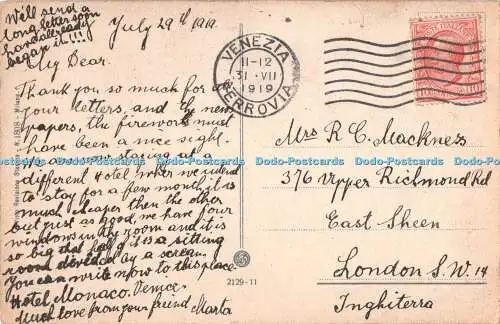 We'll send a
long letter soon
have already
began it!!!
July 29th 1919.
My Dear.
Thank you so much for
your letters, and the new
papers, the fireworks must
have been a nice sight.
We are now staying at a
different Hotel where we intend
to stay for a few month, it is
much cheaper then the other
but just as good, we have four
windows in the room and it is
so big that half of it is a sitting
room divided by a screan.
You can write now to this place
Hotel Monaco. Venice
Much love from your friend Marta
VENEZIA
11-12
31·VII
1919
FERROVIA
Mrs R. C. Mackness
376 Upper Richmond Rd
East Sheen
London S.W. 14
Inghilterra
2129-11
Dodo-Postcards Dodo-Postcards Dodo-Postcards Dodo-Postcards